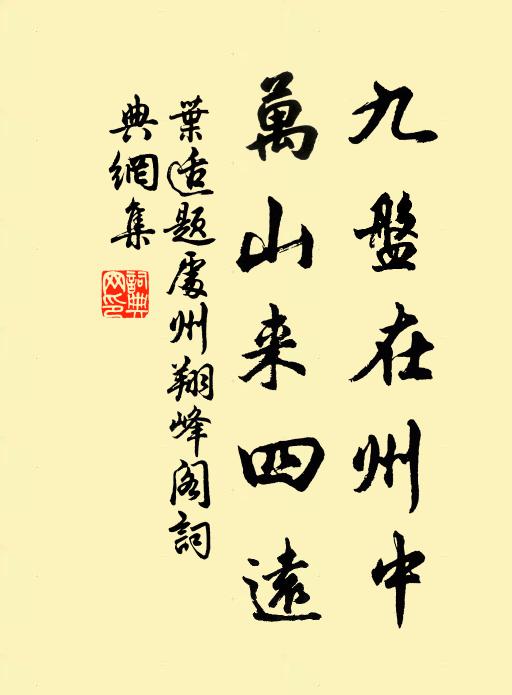 九盤在州中
萬山来四遠
葉适題處州翔峰閣詞
典網集
詞典
网印